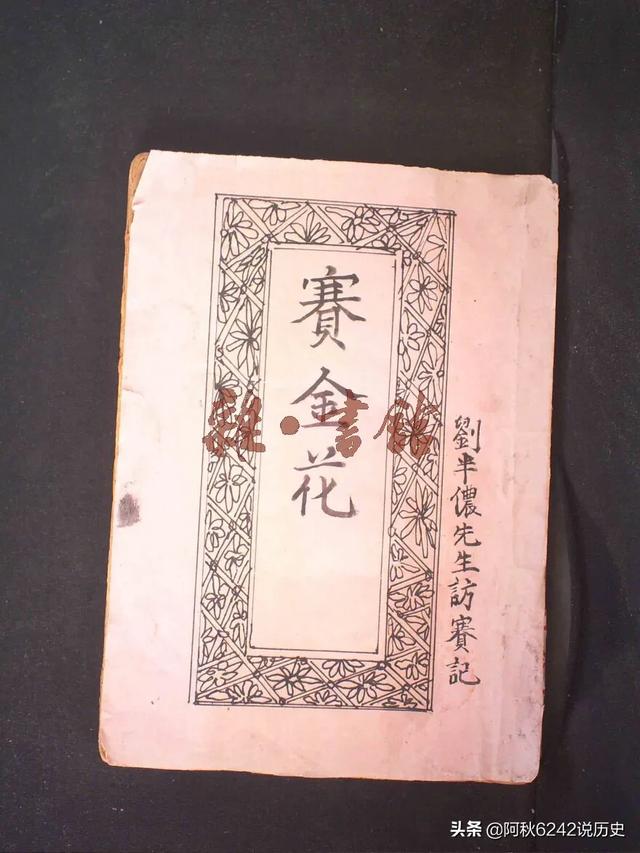 賽金花
劉半儂先生訪賽記
雜·書館
头条 @阿秋6242说历史